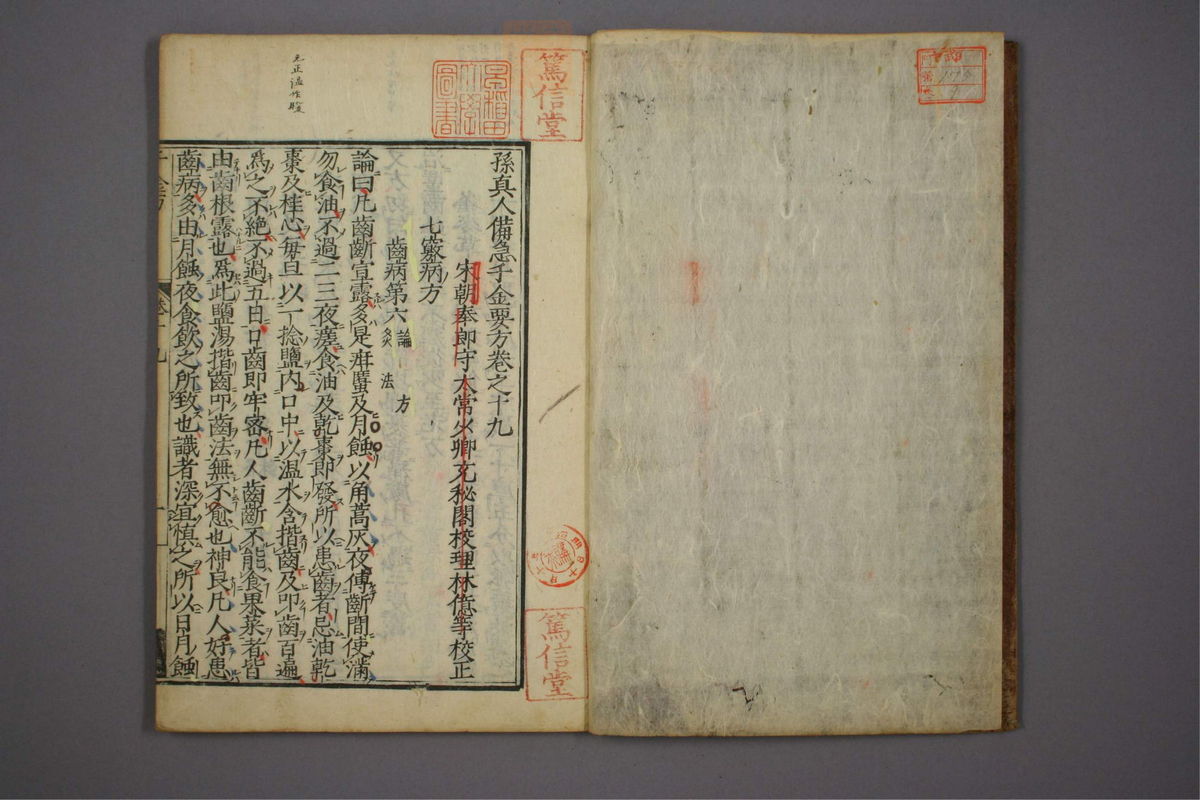 孫真人備急千金要方卷之十九
宋朝奉郎守太常少卿充秘閣校理林億等校正
七竅病方
齒病第六
論
灸法
方
論曰凡齒齗宣露多是疳䘌及月蝕以角蒿灰夜傅齗間使滿
勿食油不過二三夜瘥食油及乾棗即發所以患齒者忌油乾
棗及桂心每旦以一捻鹽内口中以温水含揩齒及叩齒百遍
爲之不絶不過五日口齒即牢密凡人齒齗不能食果菜者皆
由齒根露也爲此鹽湯揩齒叩齒法無不愈也神良凡人好患
齒病多由月蝕夜食飲之所致也識者深宜慎之所以日月蝕
卷十九
篤信堂
早稲田大學圖書
篤信堂